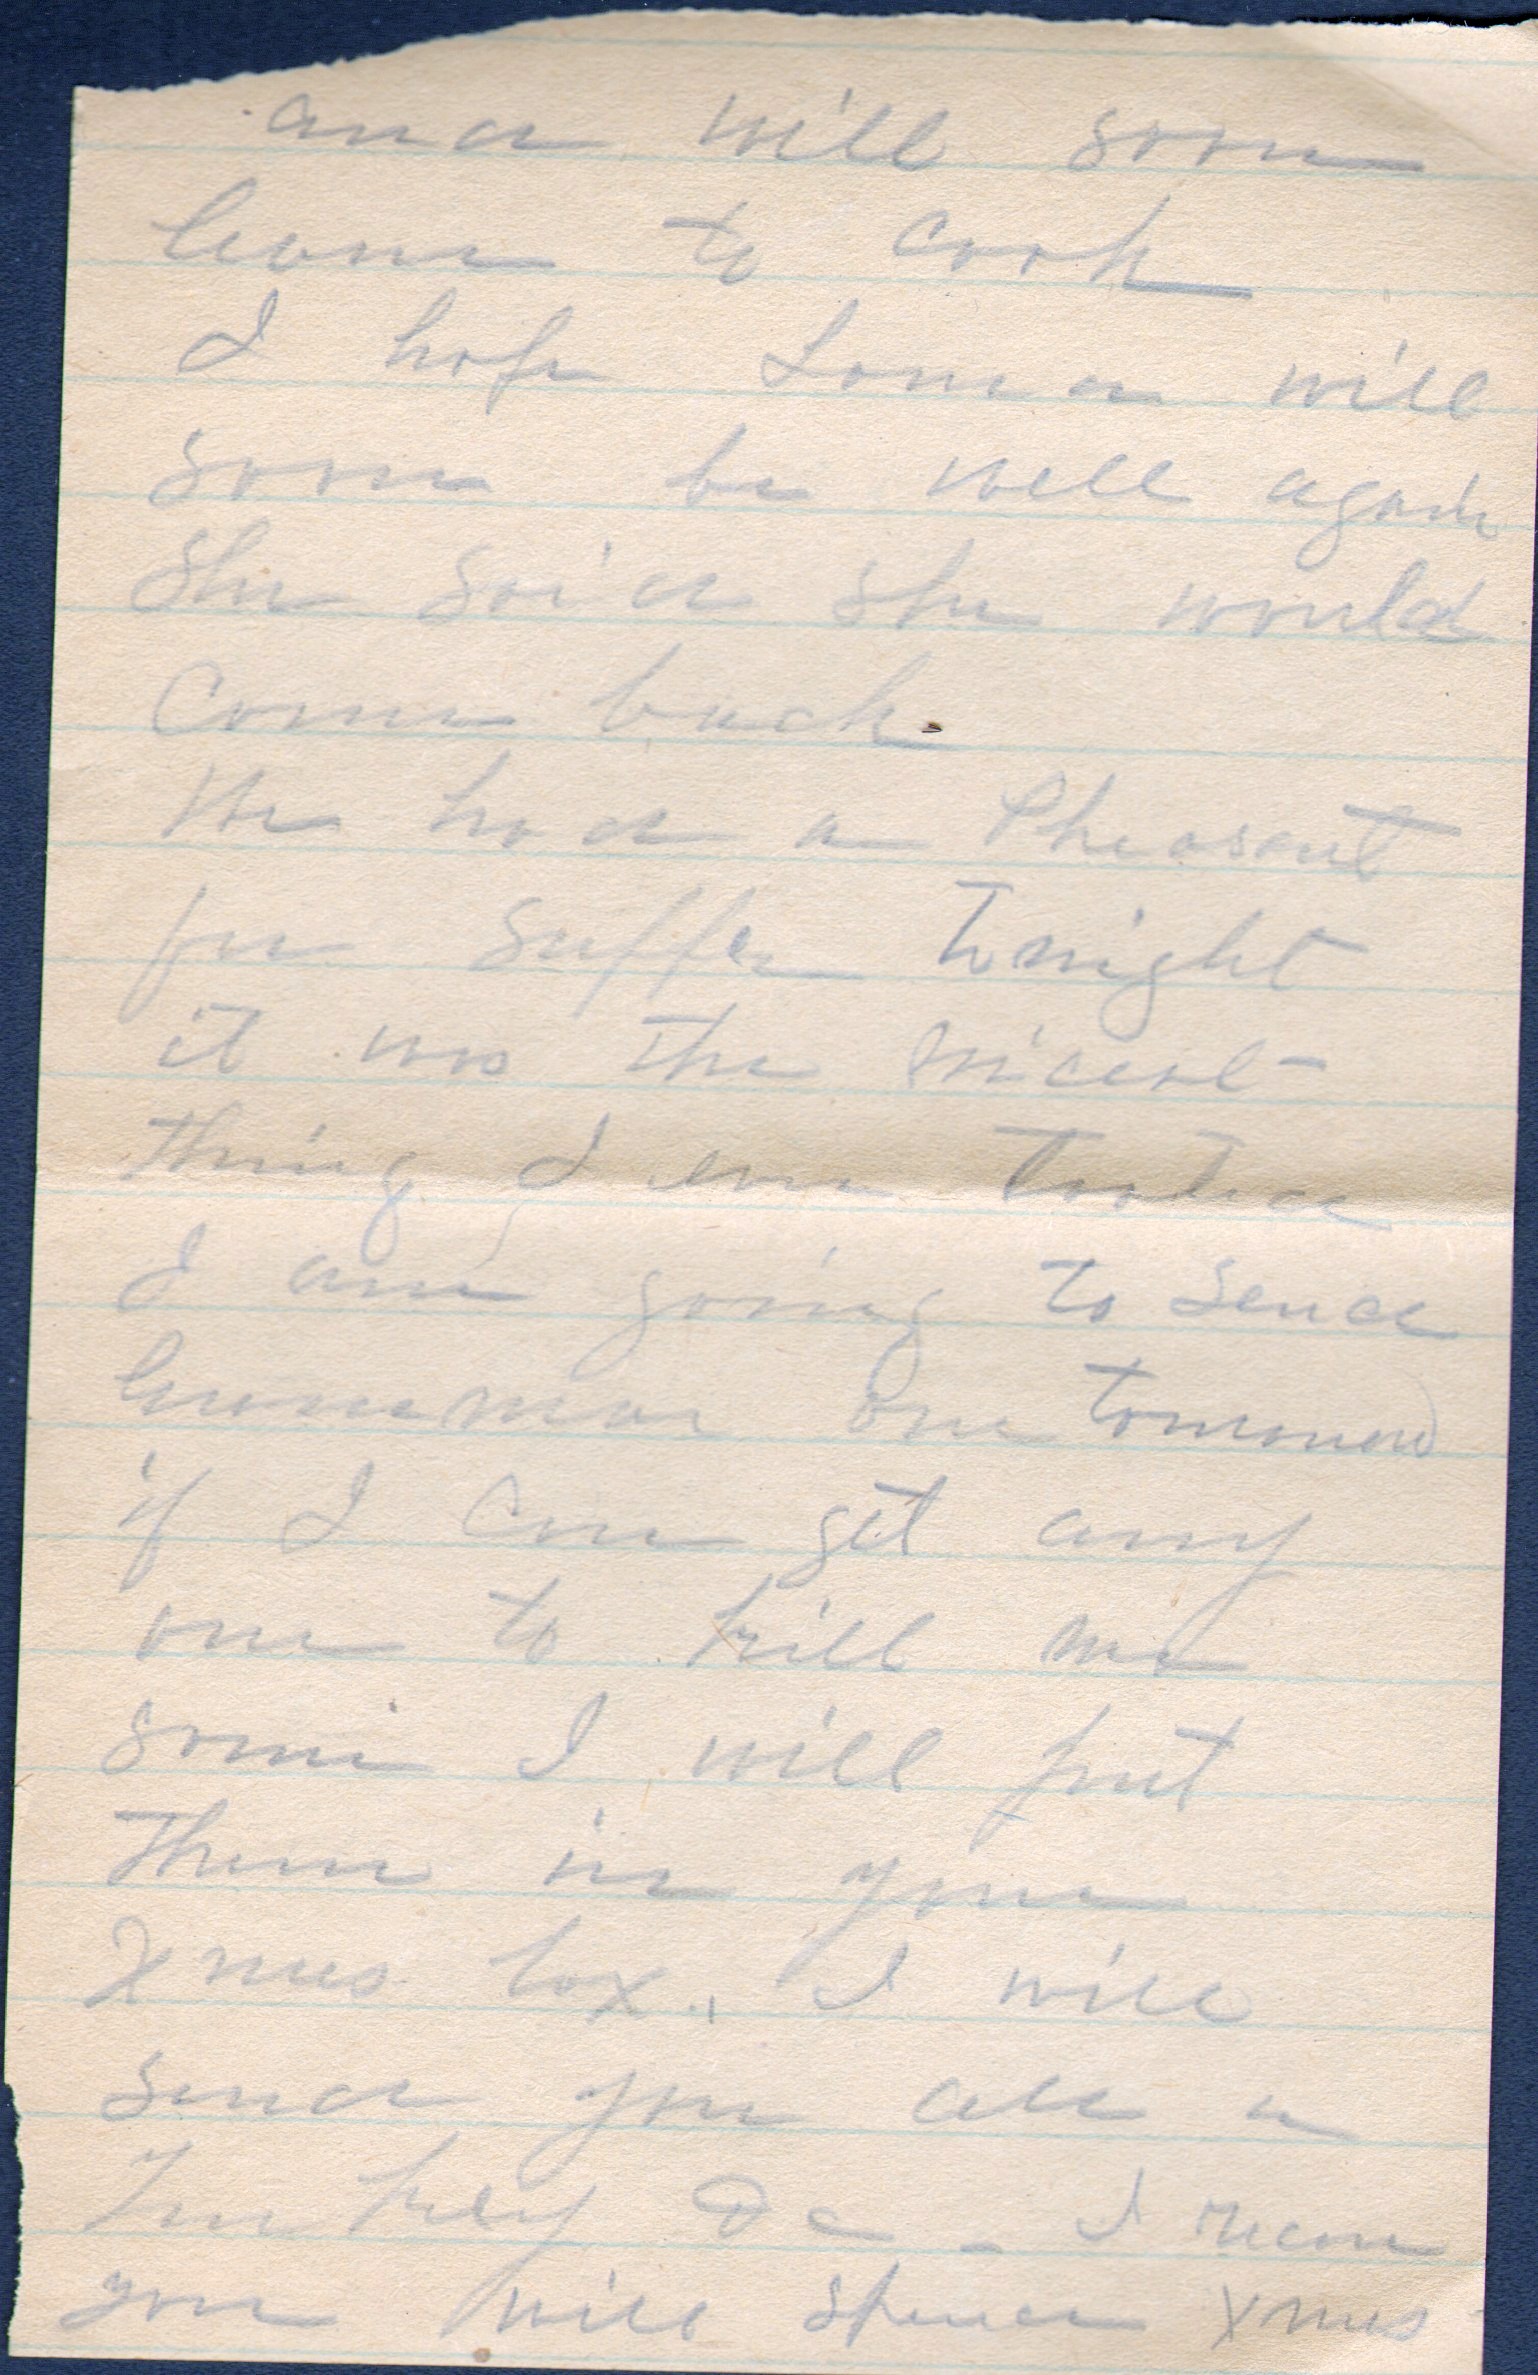 and will soon
learn to cook
I hope Louisa will
soon be well again
She said she would
come back.
We had a Pheasant
for supper tonight
it was the nicest
thing I ever tasted
I am going to send
one tomorrow
if I can get any
one to kill me
some I will put
them in your
Xmas box. I will
send you all a
Turkey &c - I recon
you will spend Xmas